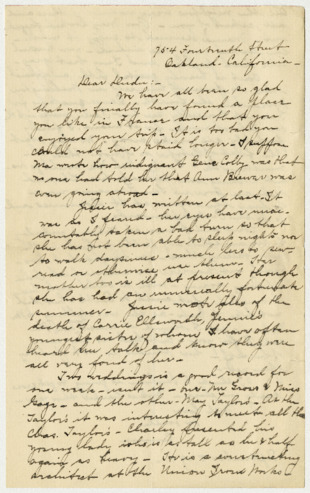 754 Fourteenth Street
Oakland - California -
Dear Dudu:-
We have all been so glad
that you finally have found a place
you like in France and that you
enjoyed your trip - It is too bad you
could not have staid longer - I suppose
Ma wrote how indignant Gene Colby was that
no one had told her that Ann Brewer was
even going abroad -
has written at last - It
was as I feared - her eyes have
taken a bad turn so that
she has not been able to sleep nights nor
to walk daytimes - much less to sew -
read or otherwise use them - Her
mother too is ill at present though
she has had an unusually fortunate
summer - of the
death of Carrie Ellsworth,
youngest sister of whom I have often
heard her talk and know they were
all very fond of her -
Two weddings is a good record for
one week - isn't it - and Miss
Gage - and the other - May Taylor's - At the
Taylors it was interesting to meet all the
Chas. Taylors - Charley presented his
young lady who is as tall as he & half
again as heavy - He is a
at the Union Iron Works